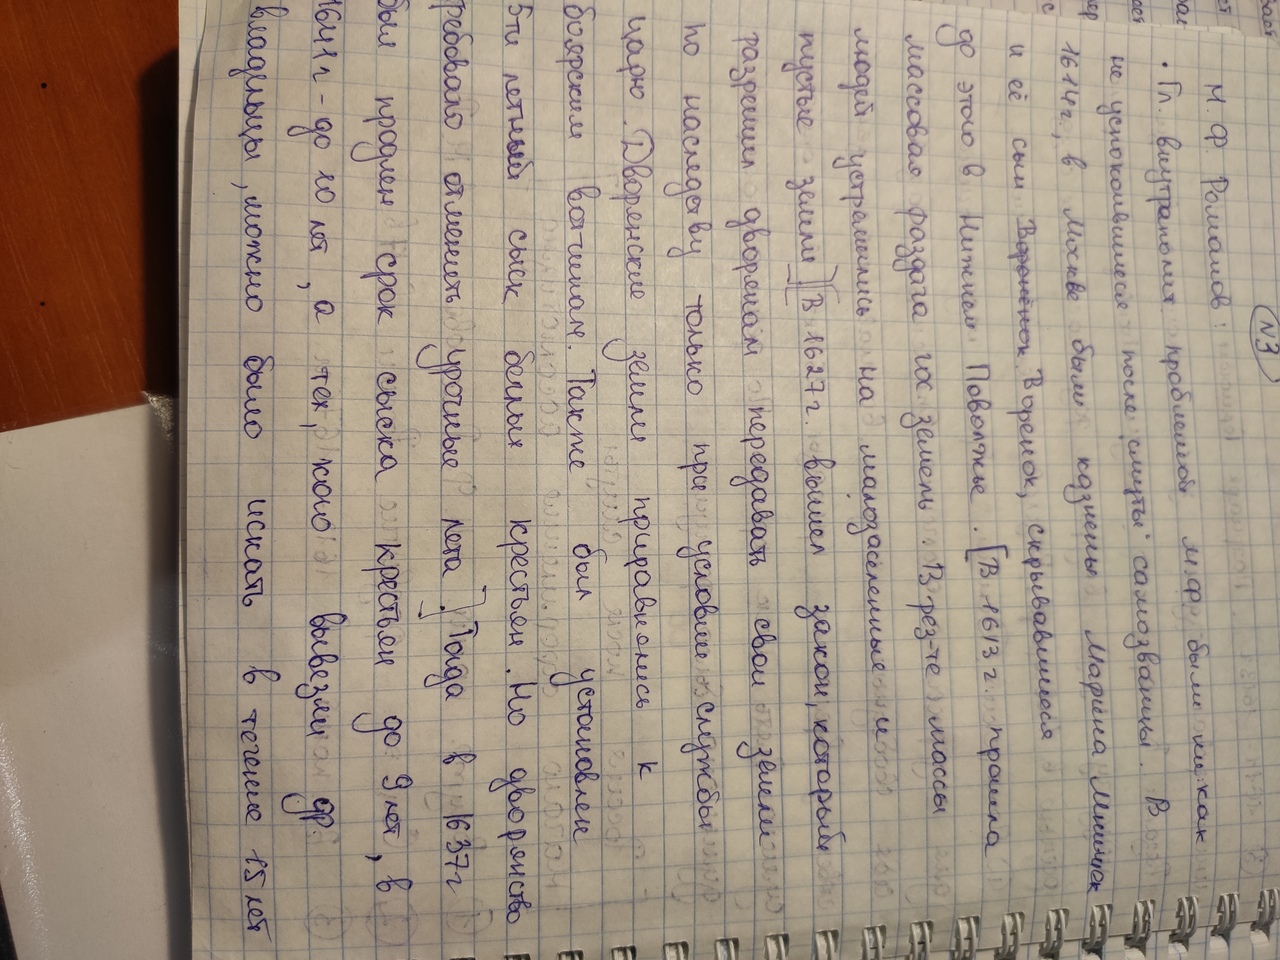 №3
М. Ф. Романов:
• Гл. внутриполит. проблемой М.Ф. были никак
не успокоившиеся после "смуты" самозванцы. В
1614г., в Москве были казнены Марина Мнишек
и её сын Воренёнок Воренок, скрывавшиеся
до этого в Нижнем Поволжье. [В 1613 г. прошла
массовая раздача гос. земель. В рез-те массы
людей устремились на малозаселенные и
пустые земли] [В 1627г. вышел закон, который
разрешил дворянам передавать свои земли
по наследству только при условии службы
царю. Дворянские земли приравнялись к
боярским вотчинам. Также был установлен
5ти летный сыск беглых крестьян. Но дворянство
ребовало отменить урочные лета]. Тогда в 1637г
был продлен срок сыска крестьян до 9 лет, в
1641г - до 10 лет, а тех, кого вывезли др.
владельцы, можно было искать в течение 15 лет